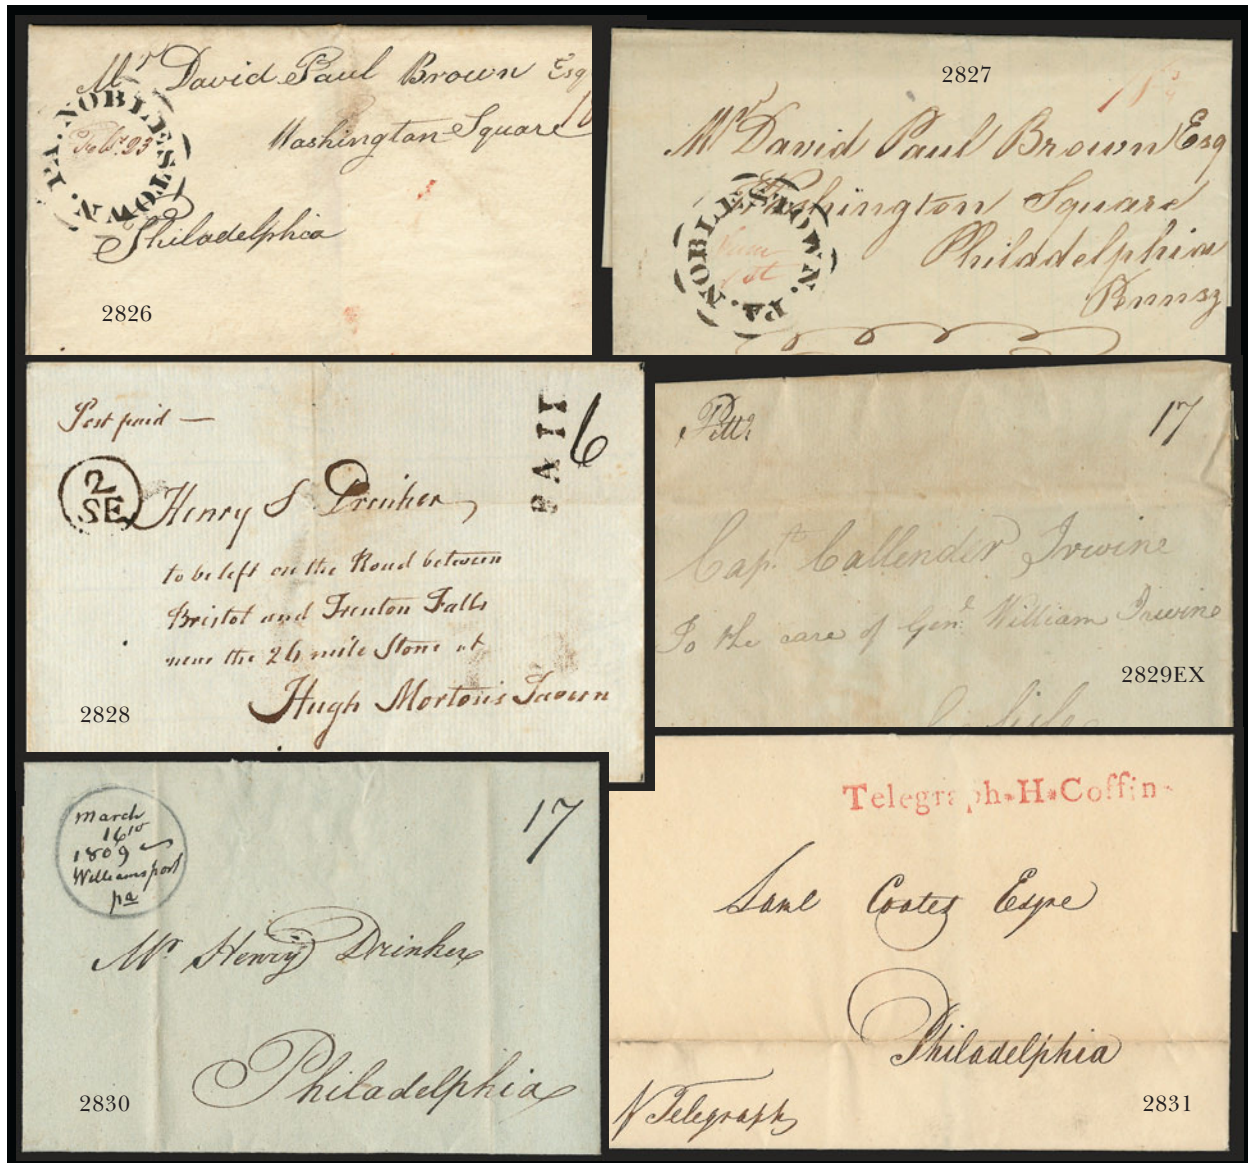 Mr David Paul Brown Esq
Washington Square
Philadelphia
NOBLESTOWN. PA.
Feby. 23
10
2826
2827
Mr David Paul Brown Esq
Washington Square
Philadelphia
NOBLESTOWN. PA.
1st
2828
Post paid —
PAID
6
2
SE
Henry S Drinker
to be left on the Road between
Bristol and Trenton Falls
near the 26 mile Stone at
Hugh Morton's Tavern
17
Capt. Callender Irvine
To the care of Genl. William Irvine
2829EX
March
16th
1809
Williamsport
pa
17
Mr. Henry Drinker
Philadelphia
2830
Telegraph*H*Coffin
Saml Coates Esqre
Philadelphia
Telegraph
2831